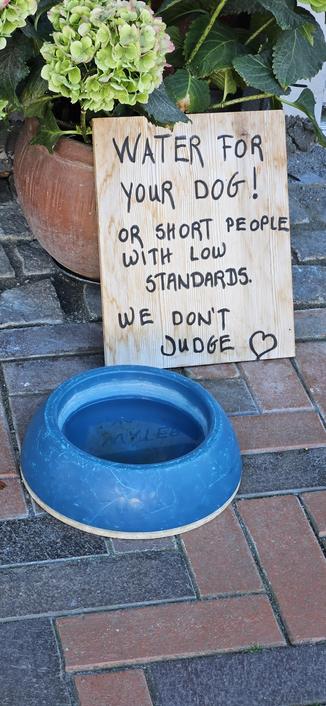 WATER FOR
YOUR DOG!
OR SHORT PEOPLE
WITH LOW
STANDARDS.
WE DON'T
JUDGE ♡